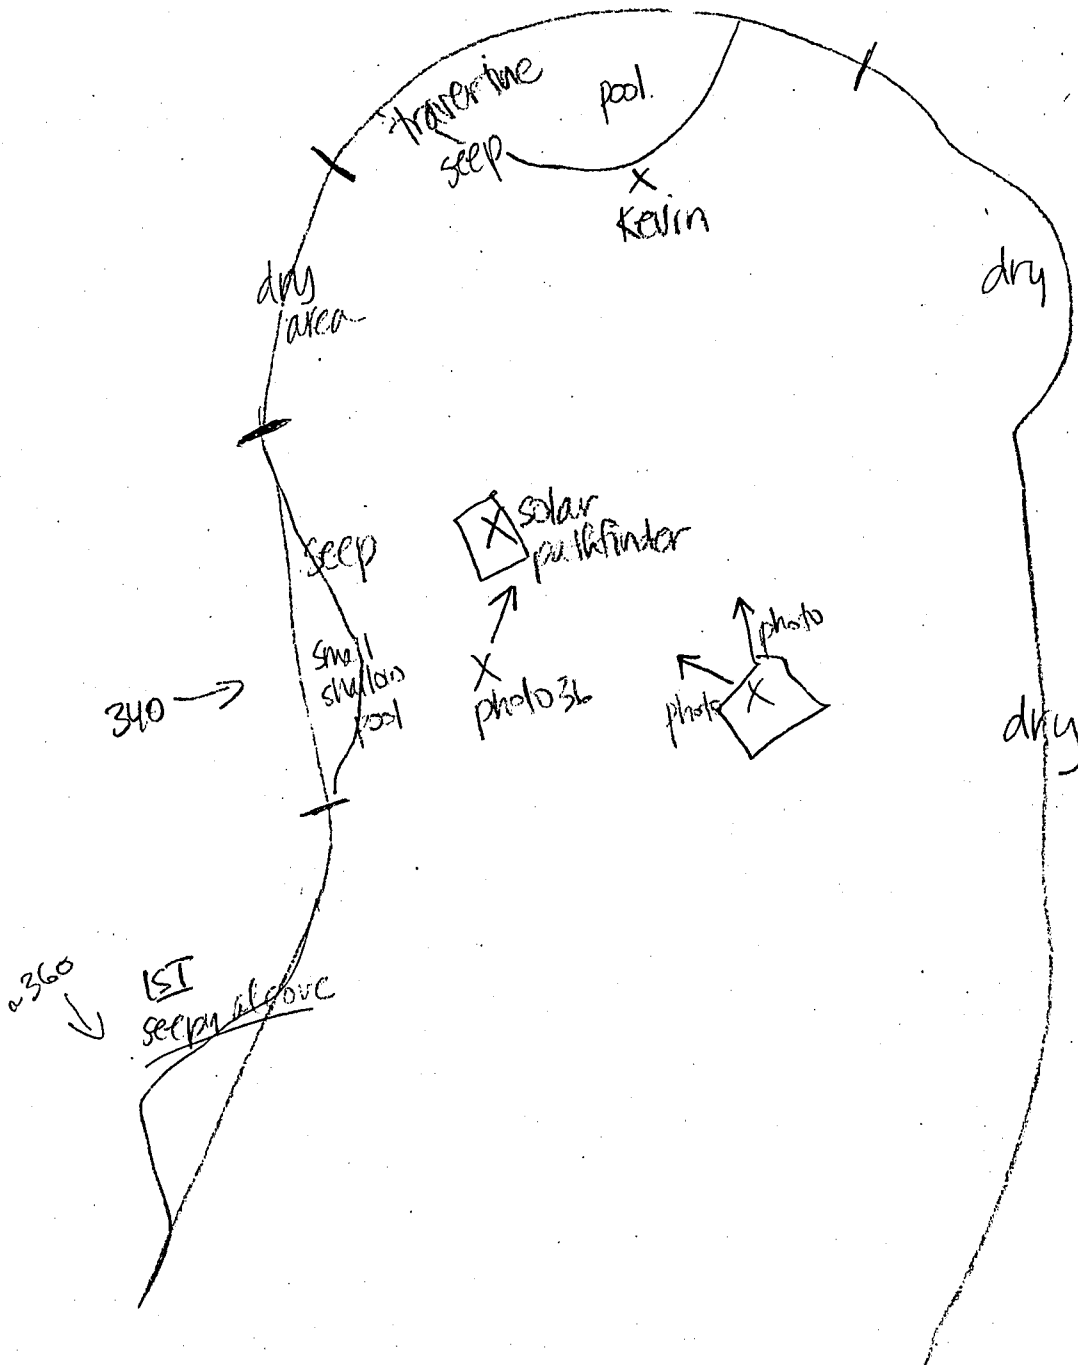 travertine
seep
pool.
X
Kevin
dry
area
dry
X solar
pathfinder
seep
small
shallow
pool
340
X
photo 36
photo
photo
X
dry
~360
1ST
seepy alcove